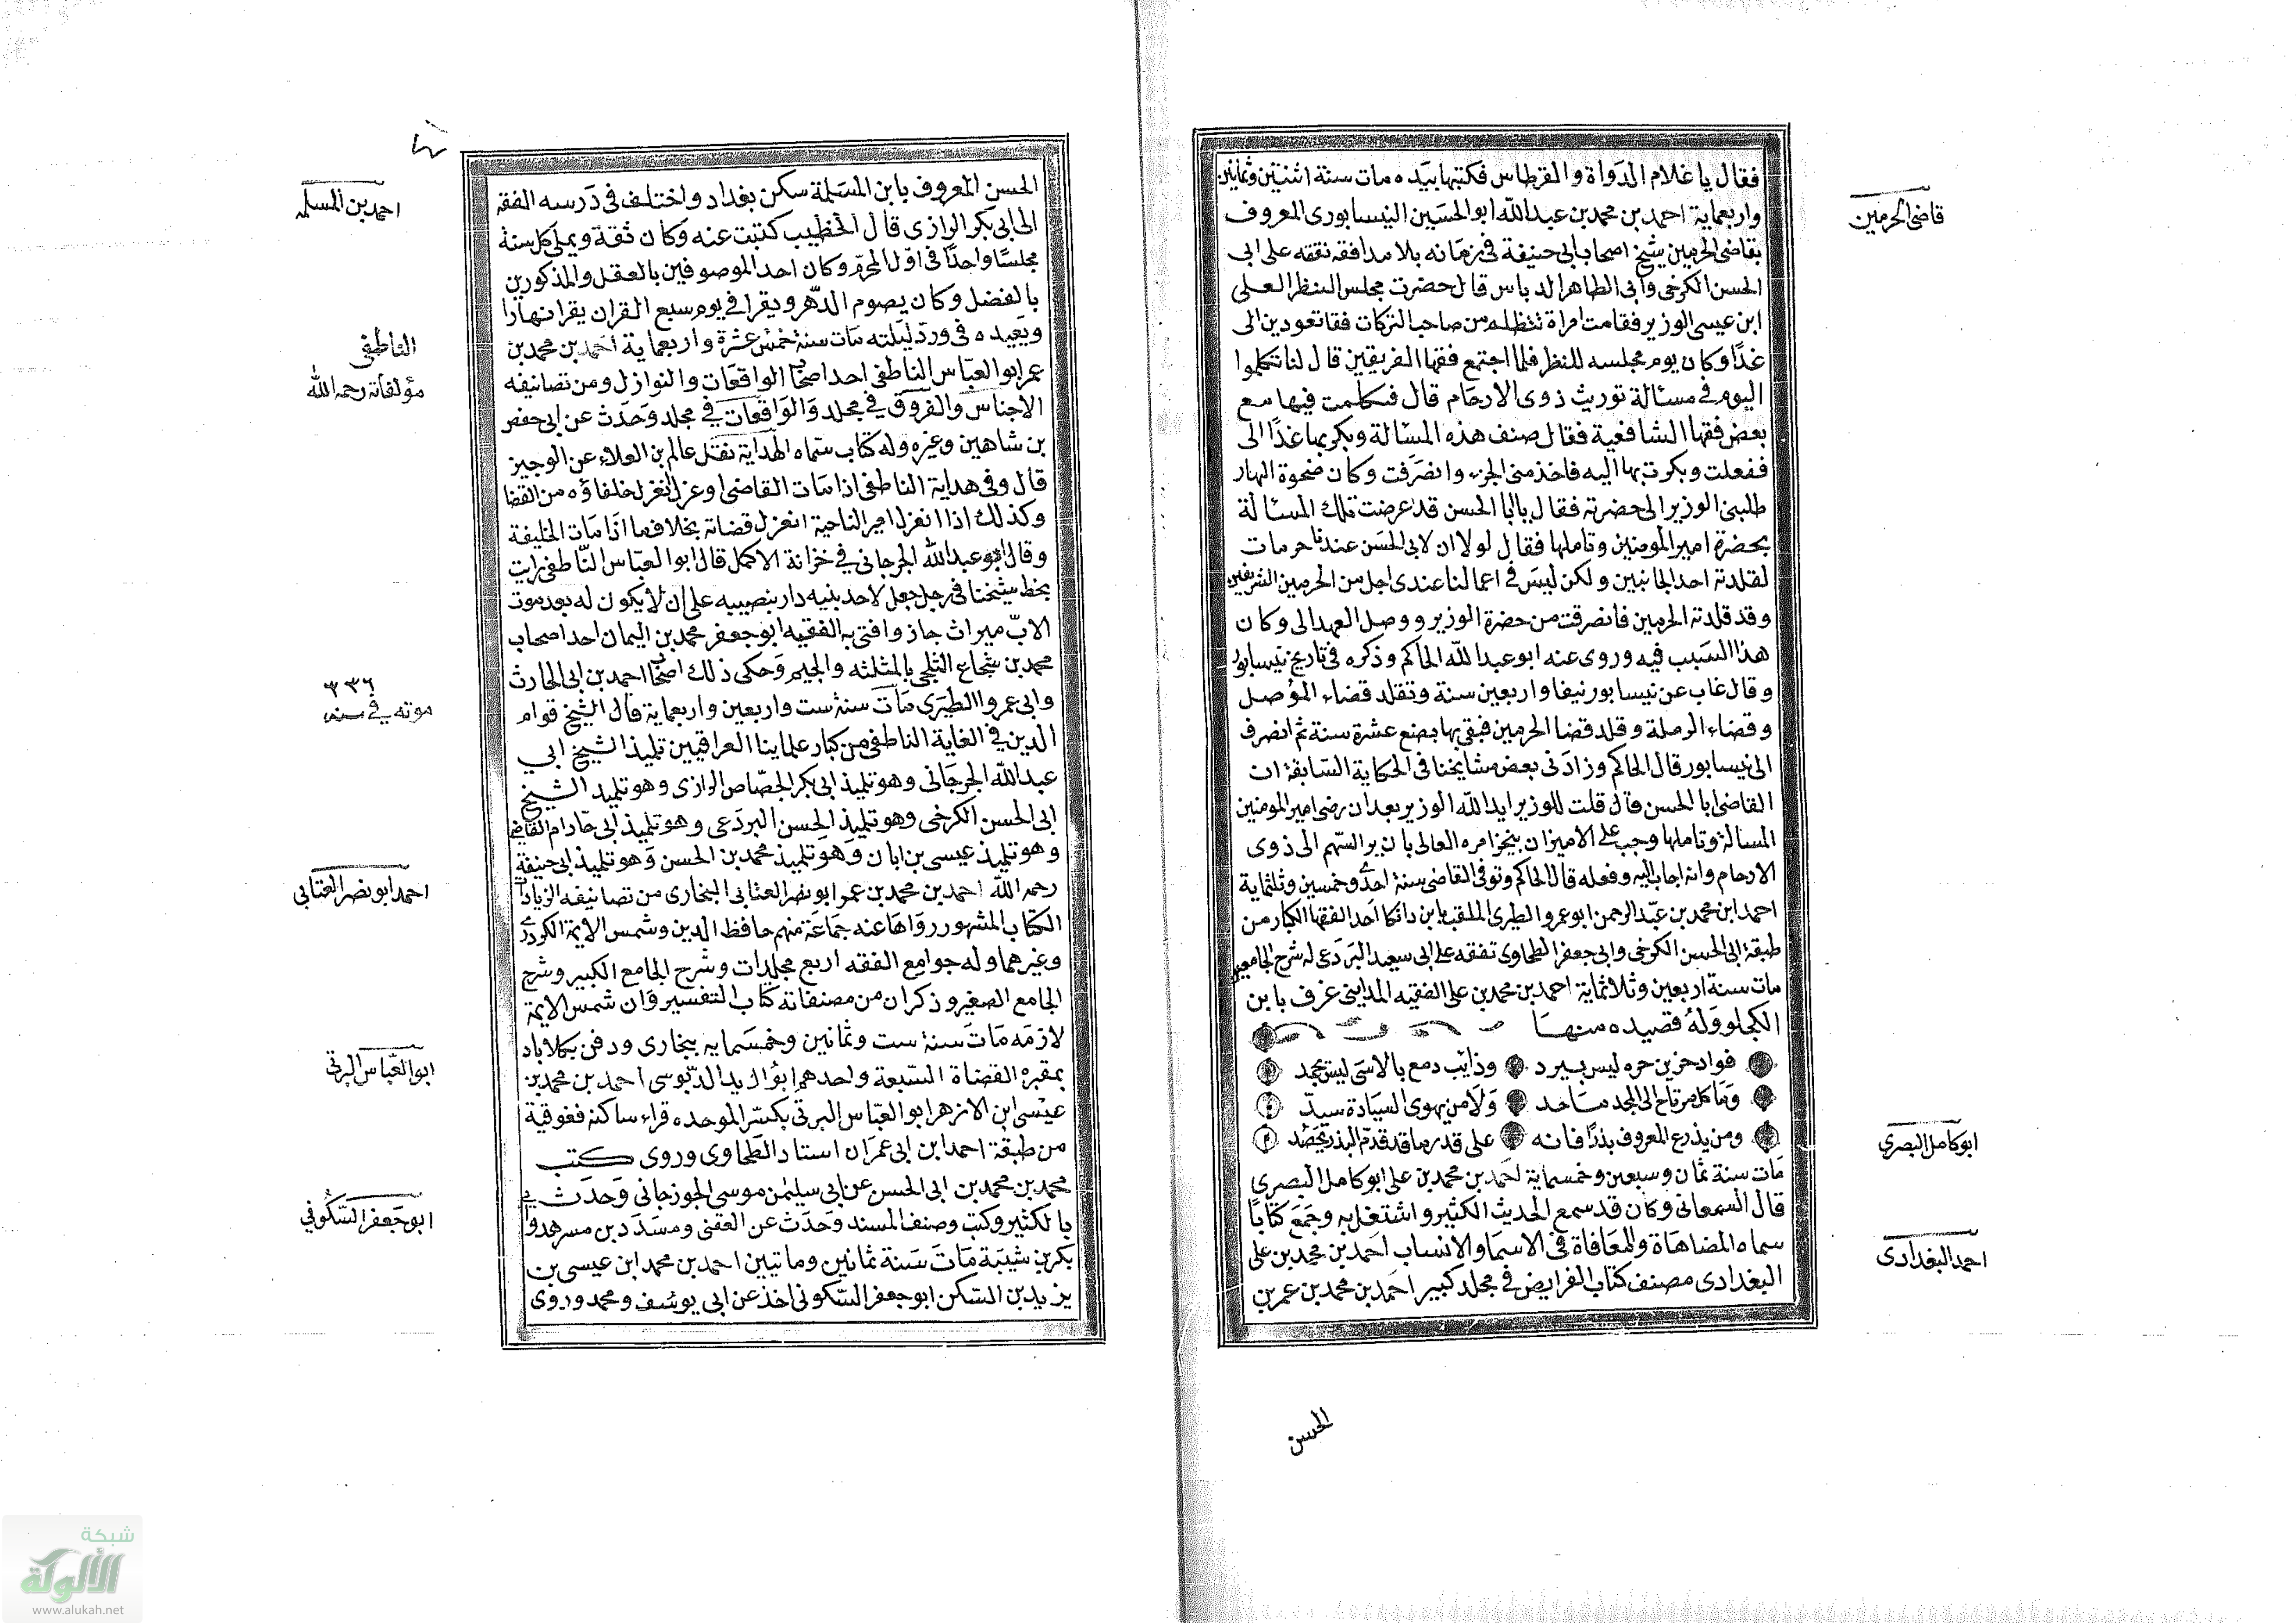 فقال يا غلام الدواة والقرطاس فكتبها بيده مات سنة اثنتين وثمانين
واربعماية احمد بن محمد بن عبد الله ابو الحسين النيسابورى المعروف
بقاضى الحرمين شيخ اصحاب ابى حنيفة فى زمانه بلا مدافقه تفقه على ابى
الحسن الكرخى وابى الطاهر الدباس قال حضرت مجلس النظر العلى
ابن عيسى الوزير فقامت امراة تتظلم من صاحب التركات فقا تعودين الى
غدًا وكان يوم مجلسه للنظر فلما اجتمع فقها الفريقين قال لنا تكلموا
اليوم فى مسئالة توريث ذوى الارحام قال فتكلمت فيها مع
بعض فقها الشافعية فقال صنف هذه المسالة وبكر بها غدًا الى
ففعلت وبكرت بها اليه فاخذ منى الجزء وانصرفت وكان ضحوة النهار
طلبنى الوزير الى حضرته فقال يا ابا الحسن قد عرضت تلك المسئالة
بحضرة امير المومنين وتاملها فقال لولا ان لابى الحسن عندنا حرمات
لقلدته احد الجانبين ولكن ليس فى اعمالنا عندى اجل من الحرمين الشريفين
وقد قلدته الحرمين فانصرفت من حضرة الوزير ووصل العهد الى وكان
هذا السبب فيه وروى عنه ابو عبد الله الحاكم وذكره فى تاريخ نيسابور
وقال غاب عن نيسابور نيفا واربعين سنة وتقلد قضاء الموصل
وقضاء الرملة وقلد قضا الحرمين فبقى بها بضع عشرة سنة ثم انصرف
الى نيسابور قال الحاكم وزادنى بعض مشايخنا فى الحكاية السابقة ان
القاضى ابا الحسن قال قلت للوزير ايد الله الوزير بعد ان رضى امير المومنين
المسالة وتاملها وجب على الامير ان ينجز امره العالى بان يرد السهم الى ذوى
الارحام وانه اجاب اليه وفعله قال الحاكم وتوفى القاضى سنة احدى وخمسين وثلثماية
احمد ابن محمد بن عبد الرحمن ابو عمرو الطبرى الملقب بابن دانكا احد الفقها الكبار من
طبقة ابى الحسن الكرخى وابى جعفر الطحاوى تفقه على ابى سعيد البردعى له شرح الجامعين
مات سنة اربعين وثلاثماية احمد بن محمد بن على الفقيه المداينى عرف بابن
الكجلو وله قصيده منها
فواد حزين حره ليس يبرد وذايب دمع بالاسى ليس يجمد
وما كل مرتاح الى المجد ماجد ولا من يهوى السيادة سيد
ومن يذرع المعروف بذرًا فانه على قدر ما قد قدم البذر يحصد
مات سنة ثمان وسبعين وخمسماية احمد بن محمد بن على ابو كامل البصرى
قال السمعانى وكان قد سمع الحديث الكثير واشتغل به وجمع كتابًا
سماه المضاهاة والمعافاة فى الاسما والانساب احمد بن محمد بن على
البغدادى مصنف كتاب الفرايض فى مجلد كبير احمد بن محمد بن عمر بن
قاضى الحرمين
ابو كامل البصرى
احمد البغدادى
الحسن
الحسن المعروف بابن المسلمة سكن بغداد واختلف فى درسه الفقه
الى ابى بكر الرازى قال الخطيب كتبت عنه وكان ثقة ويملى كل سنة
مجلسًا واحدًا فى اول المحرم وكان احد الموصوفين بالعقل والمذكورين
بالفضل وكان يصوم الدهر ويقرا فى يوم سبع القران يقرا نهارًا
ويعيده فى ورد ليلته مات سنة خمس عشرة واربعماية احمد بن محمد بن
عمر ابو العباس الناطفى احد اصحاب الواقعات والنوازل ومن تصانيفه
الاجناس والفروق فى مجلد والواقعات فى مجلد وحدث عن ابى حفص
بن شاهين وغيره وله كتاب سماه الهداية نقل عالم بن العلاء عن الوجيز
قال وفى هداية الناطفى اذا مات القاضى او عزل انعزل خلفاؤه من القضا
وكذلك اذا انعزل امير الناحية انعزل قضاته بخلاف ما اذا مات الخليفة
وقال ابو عبد الله الجرجانى فى خزانة الاكمل قال ابو العباس الناطفى رايت
بخط شيخنا فى رجل جعل لاحد بنيه دار بنصيبه على ان لا يكون له بعد موت
الاب ميراث جاز وافتى به الفقيه ابو جعفر محمد بن اليمان احد اصحاب
محمد بن شجاع الثلجى بالمثلثه والجيم وحكى ذلك اصحاب احمد بن ابى الحارث
وابى عمرو الطبرى مات سنة ست واربعين واربعماية قال الشيخ قوام
الدين فى الغاية الناطفى من كبار علماينا العراقيين تلميذ الشيخ ابي
عبد الله الجرجانى وهو تلميذ ابى بكر الجصاص الرازى وهو تلميد الشيخ
ابى الحسن الكرخى وهو تلميذ الحسن البردعى وهو تلميذ ابى حادام القاضى
وهو تلميذ عيسى بن ابان وهو تلميذ محمد بن الحسن وهو تلميذ ابى حنيفة
رحمه الله احمد بن محمد بن عمر ابو نصر العتابى البخارى من تصانيفه الزيادات
الكتاب المشهور رواها عنه جماعة منهم حافظ الدين وشمس الايمة الكردرى
وغيرهما وله جوامع الفقه اربع مجلدات وشرح الجامع الكبير وشرح
الجامع الصغير وذكر ان من مصنفاته كتاب التفسير وان شمس الايمة
لازمه مات سنة ست وثمانين وخمسمايه ببخارى ودفن بكلاباد
بمقبره القضاة السبعة واحدهم ابو زيد الدبوسى احمد بن محمد بن
عيسى ابن الازهر ابو العباس البرتى بكسر الموحده فراء ساكنة ففوقية
من طبقة احمد ابن ابى عمران استاد الطحاوى وروى كتب
محمد بن محمد بن ابى الحسن عن ابى سليمن موسى الجوزجانى وحدث
بالكثير وكتب وصنف المسند وحدث عن القعنى ومسدد بن مسرهد وا
بكر بن شيبة مات سنة ثمانين وماتيين احمد بن محمد ابن عيسى بن
يزيد بن السكن ابو جعفر السكونى اخذ عن ابى يوسف ومحمد وروى
احمد بن المسلمه
الناطفى
مؤلفاته رحمه الله
٣٣٦
موته فى سنه
احمد ابو نصر العتابى
ابو العباس البرتى
ابو جعفر السكوفي
شبكة
الألوكة
www.alukah.net